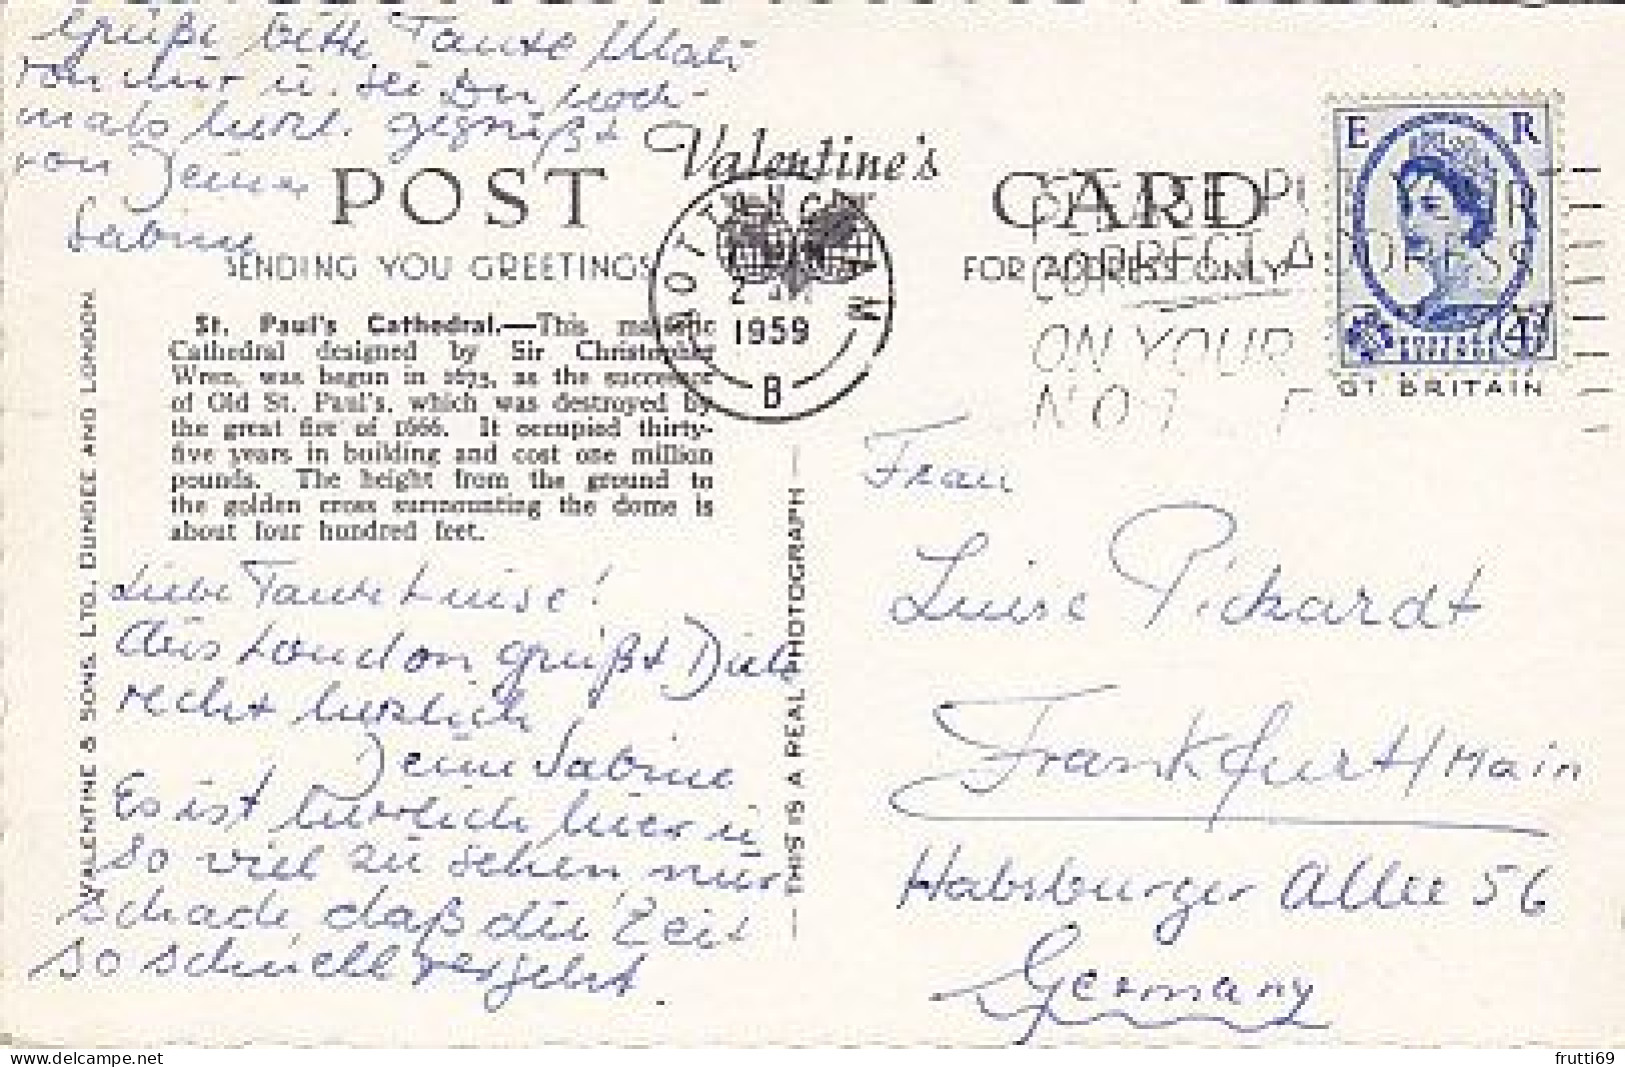 Grüße bitte Tante Mali
von mir u. sei Du noch-
mals herzl. gegrüßt
von Deiner
Sabine
POST
Valentine's
CARD
SENDING YOU GREETINGS
FOR ADDRESS ONLY
1959
B
ON YOUR
E R
4D
POSTAGE
REVENUE
GT. BRITAIN
St. Paul's Cathedral.—This majestic
Cathedral designed by Sir Christopher
Wren, was begun in 1675, as the successor
of Old St. Paul's, which was destroyed by
the great fire of 1666. It occupied thirty-
five years in building and cost one million
pounds. The height from the ground to
the golden cross surmounting the dome is
about four hundred feet.
VALENTINE & SONS, LTD., DUNDEE AND LONDON
— THIS IS A REAL PHOTOGRAPH —
Liebe Tante Luise!
Aus London grüßt Dich
recht herzlich
Deine Sabine
Es ist herrlich hier u.
so viel zu sehen nur
Schade daß die Zeit
so schnell vergeht.
Frau
Luise Pickardt
Frankfurt/Main
Habsburger Allee 56
Germany
frutti69